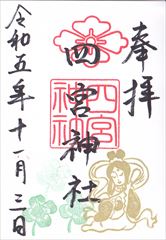 奉拝
四宮神社
四宮
神社
令和五年十一月三日